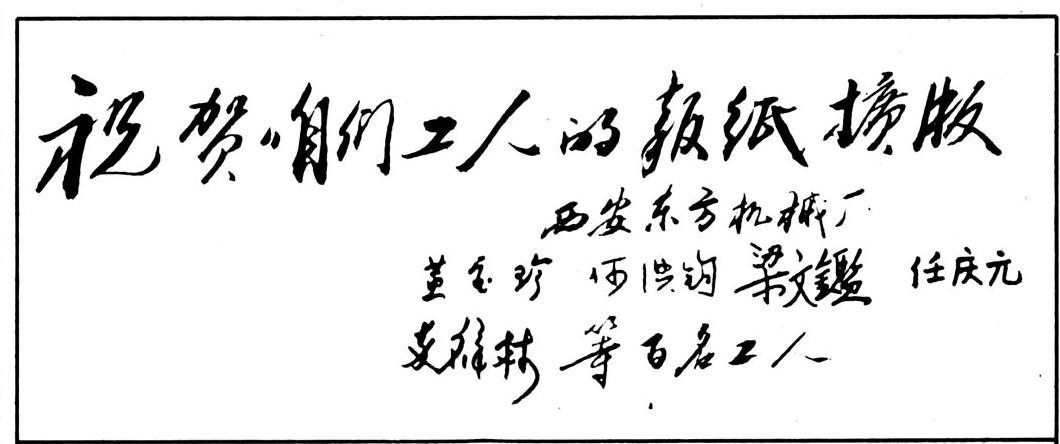 祝贺咱们工人的報纸擴版
西安东方机械厂
董玉珍 何洪钧 梁文鑑 任庆元
林 等百名工人